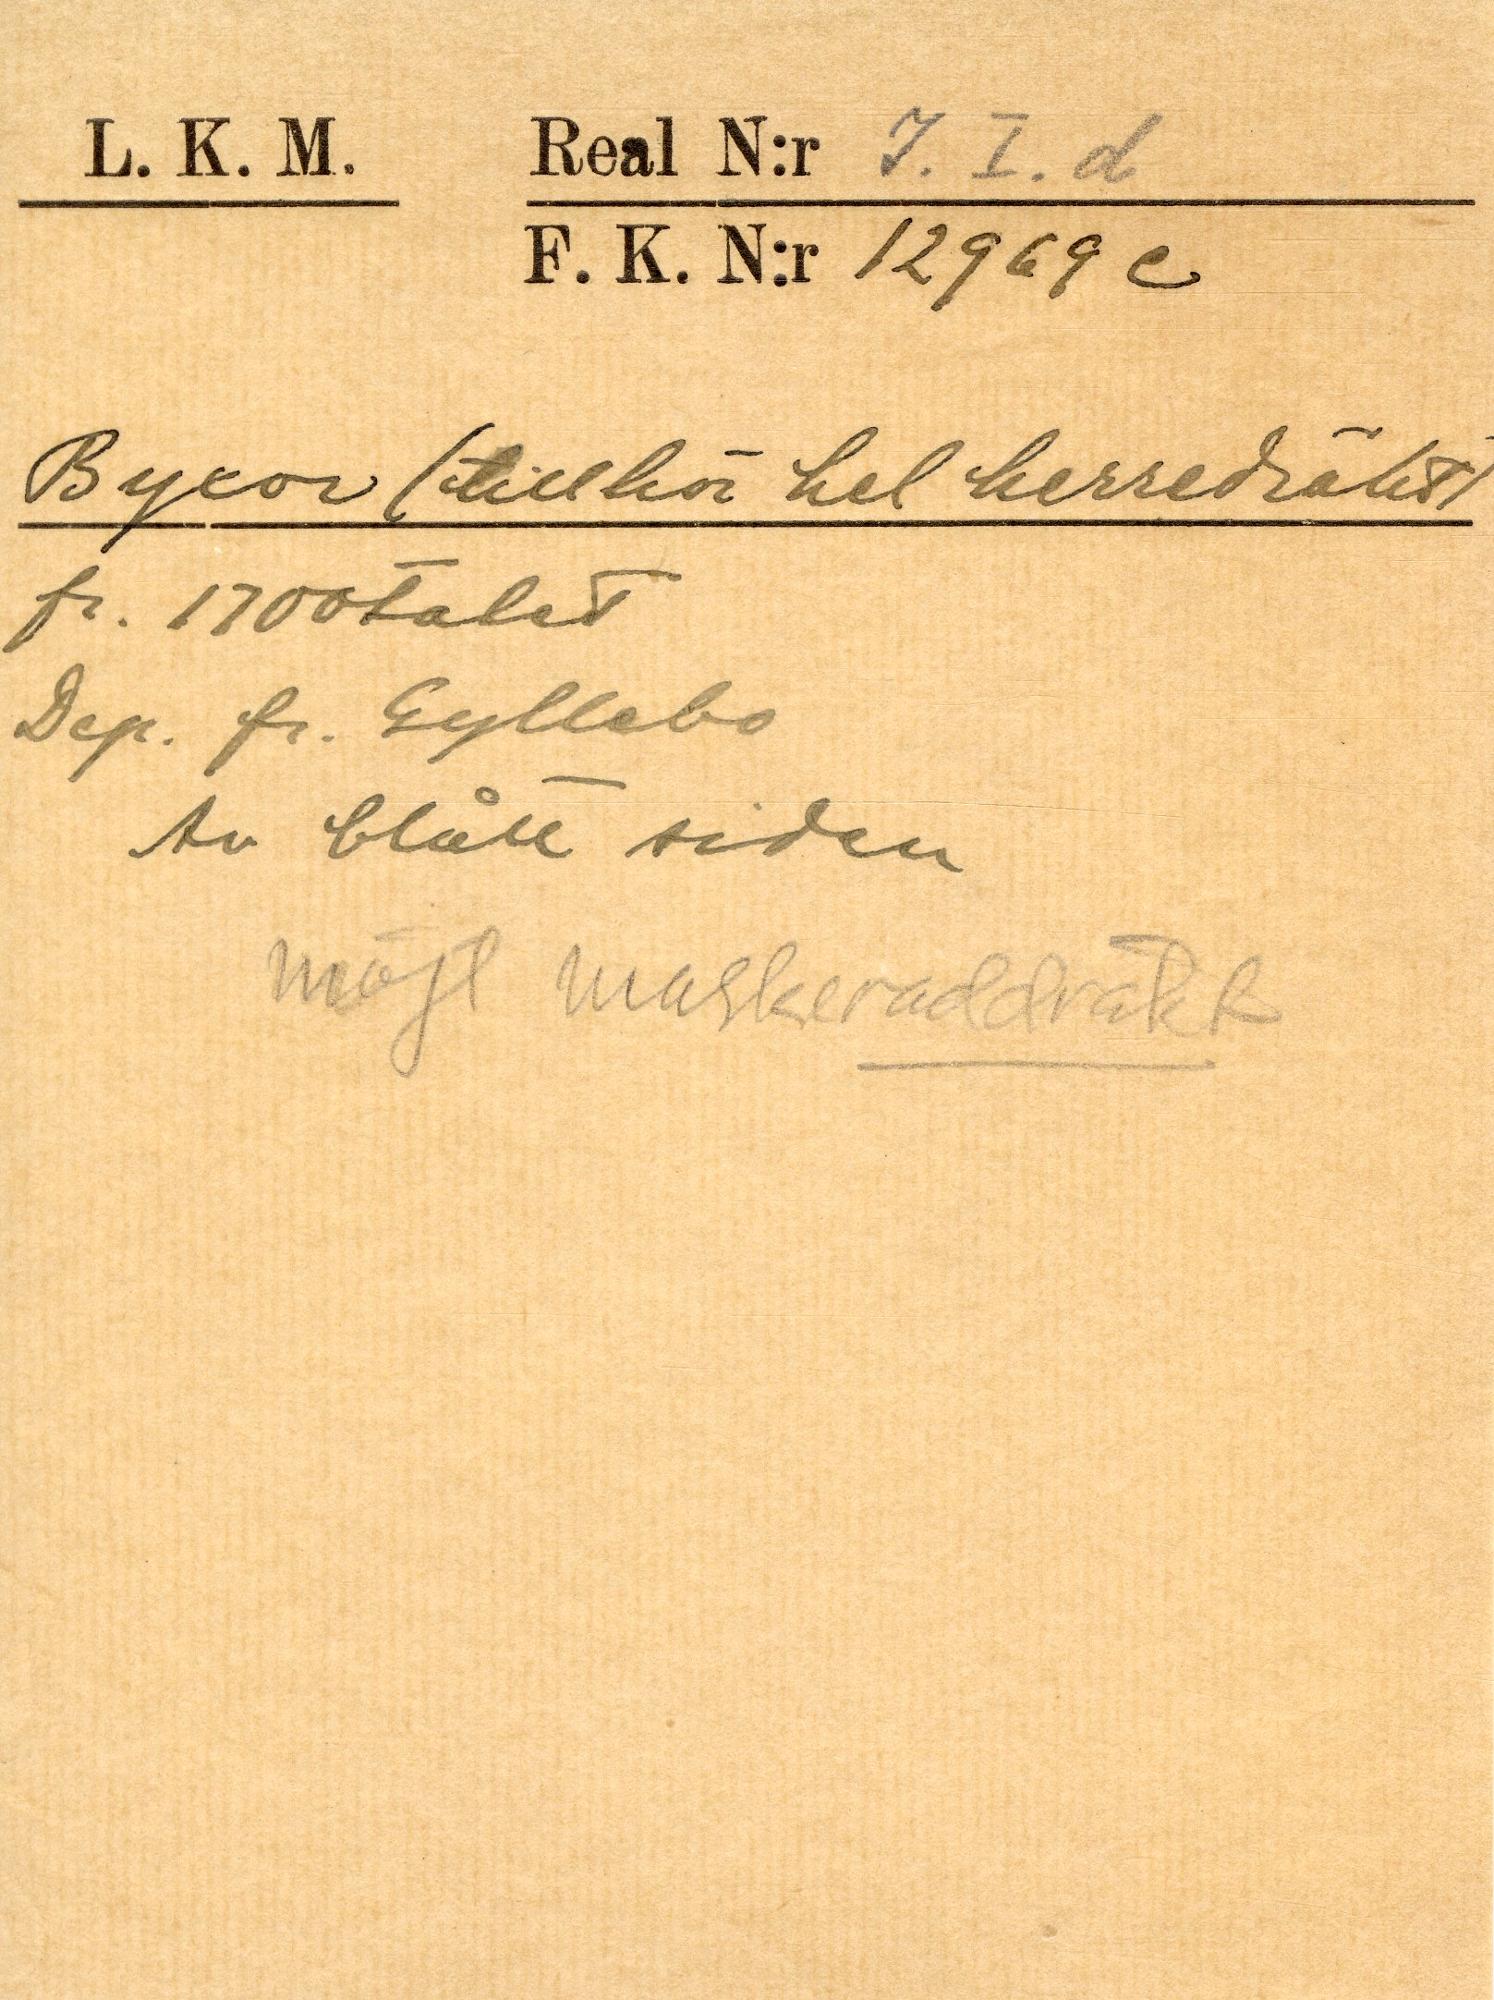 L. K. M.
Real N:r J. I. d
F. K. N:r 12969 c
Byxor (tillhör hel herredräkt)
fr. 1700talet
Dep. fr. Gyllebo
Av blått siden
möjl maskeraddräkt